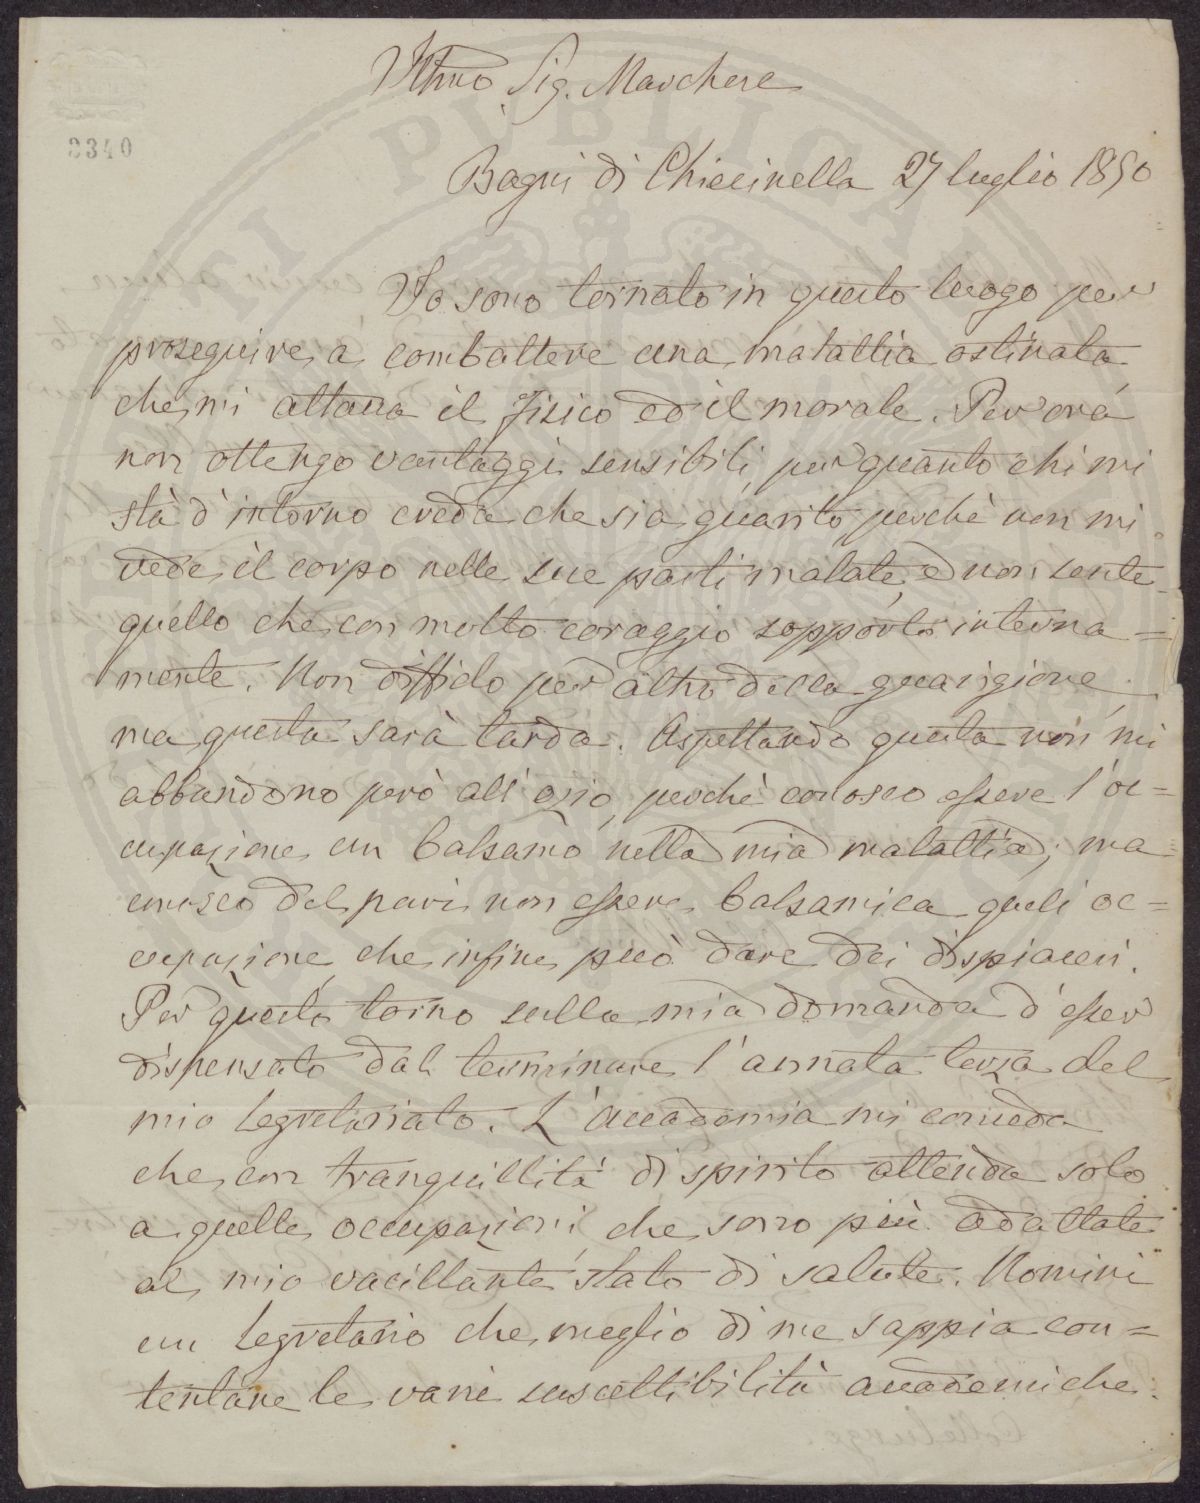 Illmo Sig. Marchese
3340
Bagni di Chiecinella 27 luglio 1850
Io sono tornato in questo luogo per
proseguire a combattere una malattia ostinata
che mi attacca il fisico ed il morale. Per ora
non ottengo vantaggi sensibili, per quanto chi mi
stà d'intorno creda che sia guarito, perchè non mi
vede il corpo nelle sue parti malate, e non sente
quello che con molto coraggio sopporto interna=
mente. Non diffido per altro della guarigione,
ma questa sarà tarda. Aspettando questa non mi
abbandono però all'ozio, perchè conosco essere l'oc=
cupazione un balsamo nella mia malattia; ma
conosco del pari non essere balsamica quell'oc=
cupazione che infine può dare dei dispiaceri.
Per questo torno sulla mia domanda d'esser
dispensato dal terminare l'annata terza del
mio segretariato. L'Accademia mi conceda
che con tranquillità di spirito attenda solo
a quelle occupazioni che sono più adattate
al mio vacillante stato di salute. Nomini
un segretario che meglio di me sappia con=
tentare le varie suscettibilità accademiche.